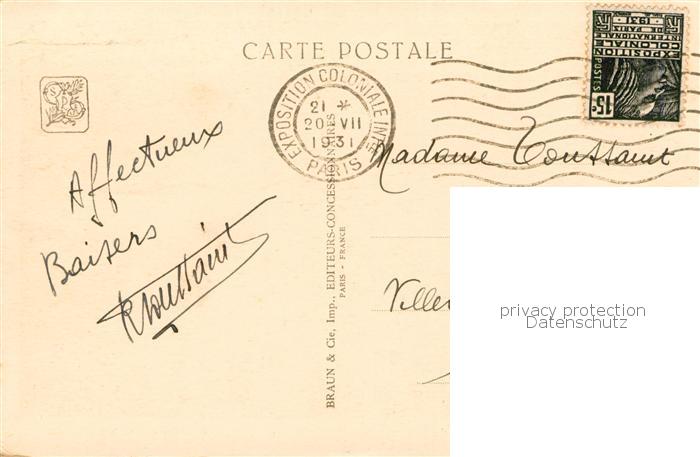 CARTE POSTALE
EXPOSITION COLONIALE INTLE
21 *
20 VII
1931
PARIS
EXPOSITION
COLONIALE
INTERNATIONALE
DE PARIS
1931
POSTES
15c
Madame Toussaint
Affectueux
Baisers
RToussaint
BRAUN & Cie, Imp., EDITEURS-CONCESSIONNAIRES
PARIS - FRANCE
privacy protection
Datenschutz